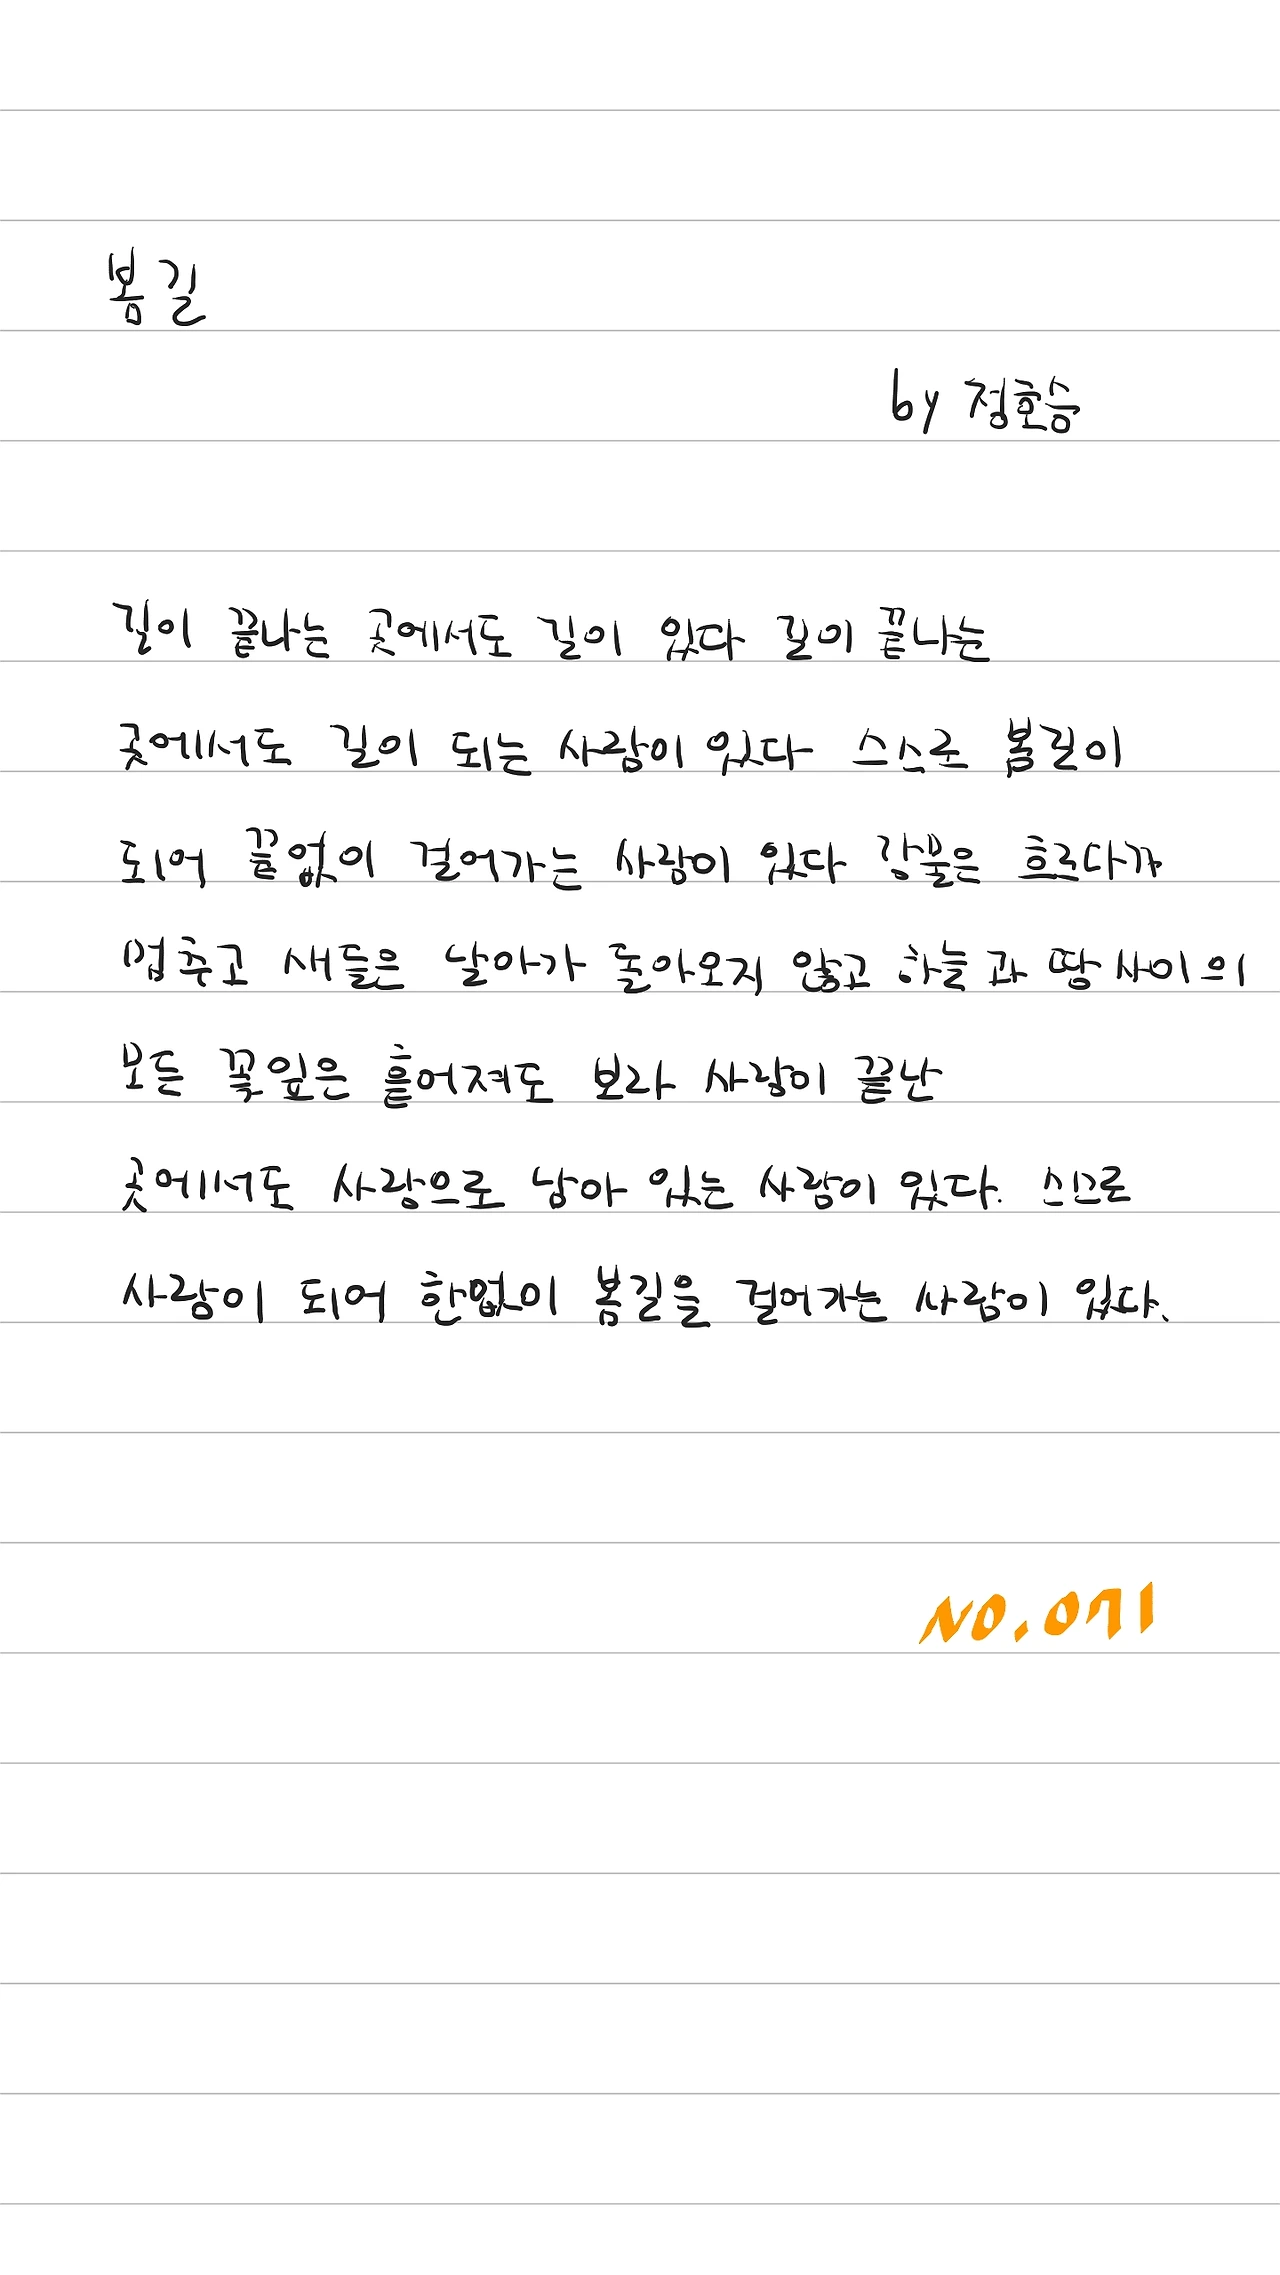 봄길
by 정호승
길이 끝나는 곳에서도 길이 있다 길이 끝나는
곳에서도 길이 되는 사람이 있다 스스로 봄길이
되어 끝없이 걸어가는 사람이 있다 강물은 흐르다가
멈추고 새들은 날아가 돌아오지 않고 하늘과 땅 사이의
모든 꽃잎은 흩어져도 보라 사랑이 끝난
곳에서도 사랑으로 남아 있는 사람이 있다. 스스로
사랑이 되어 한없이 봄길을 걸어가는 사람이 있다.
NO.071